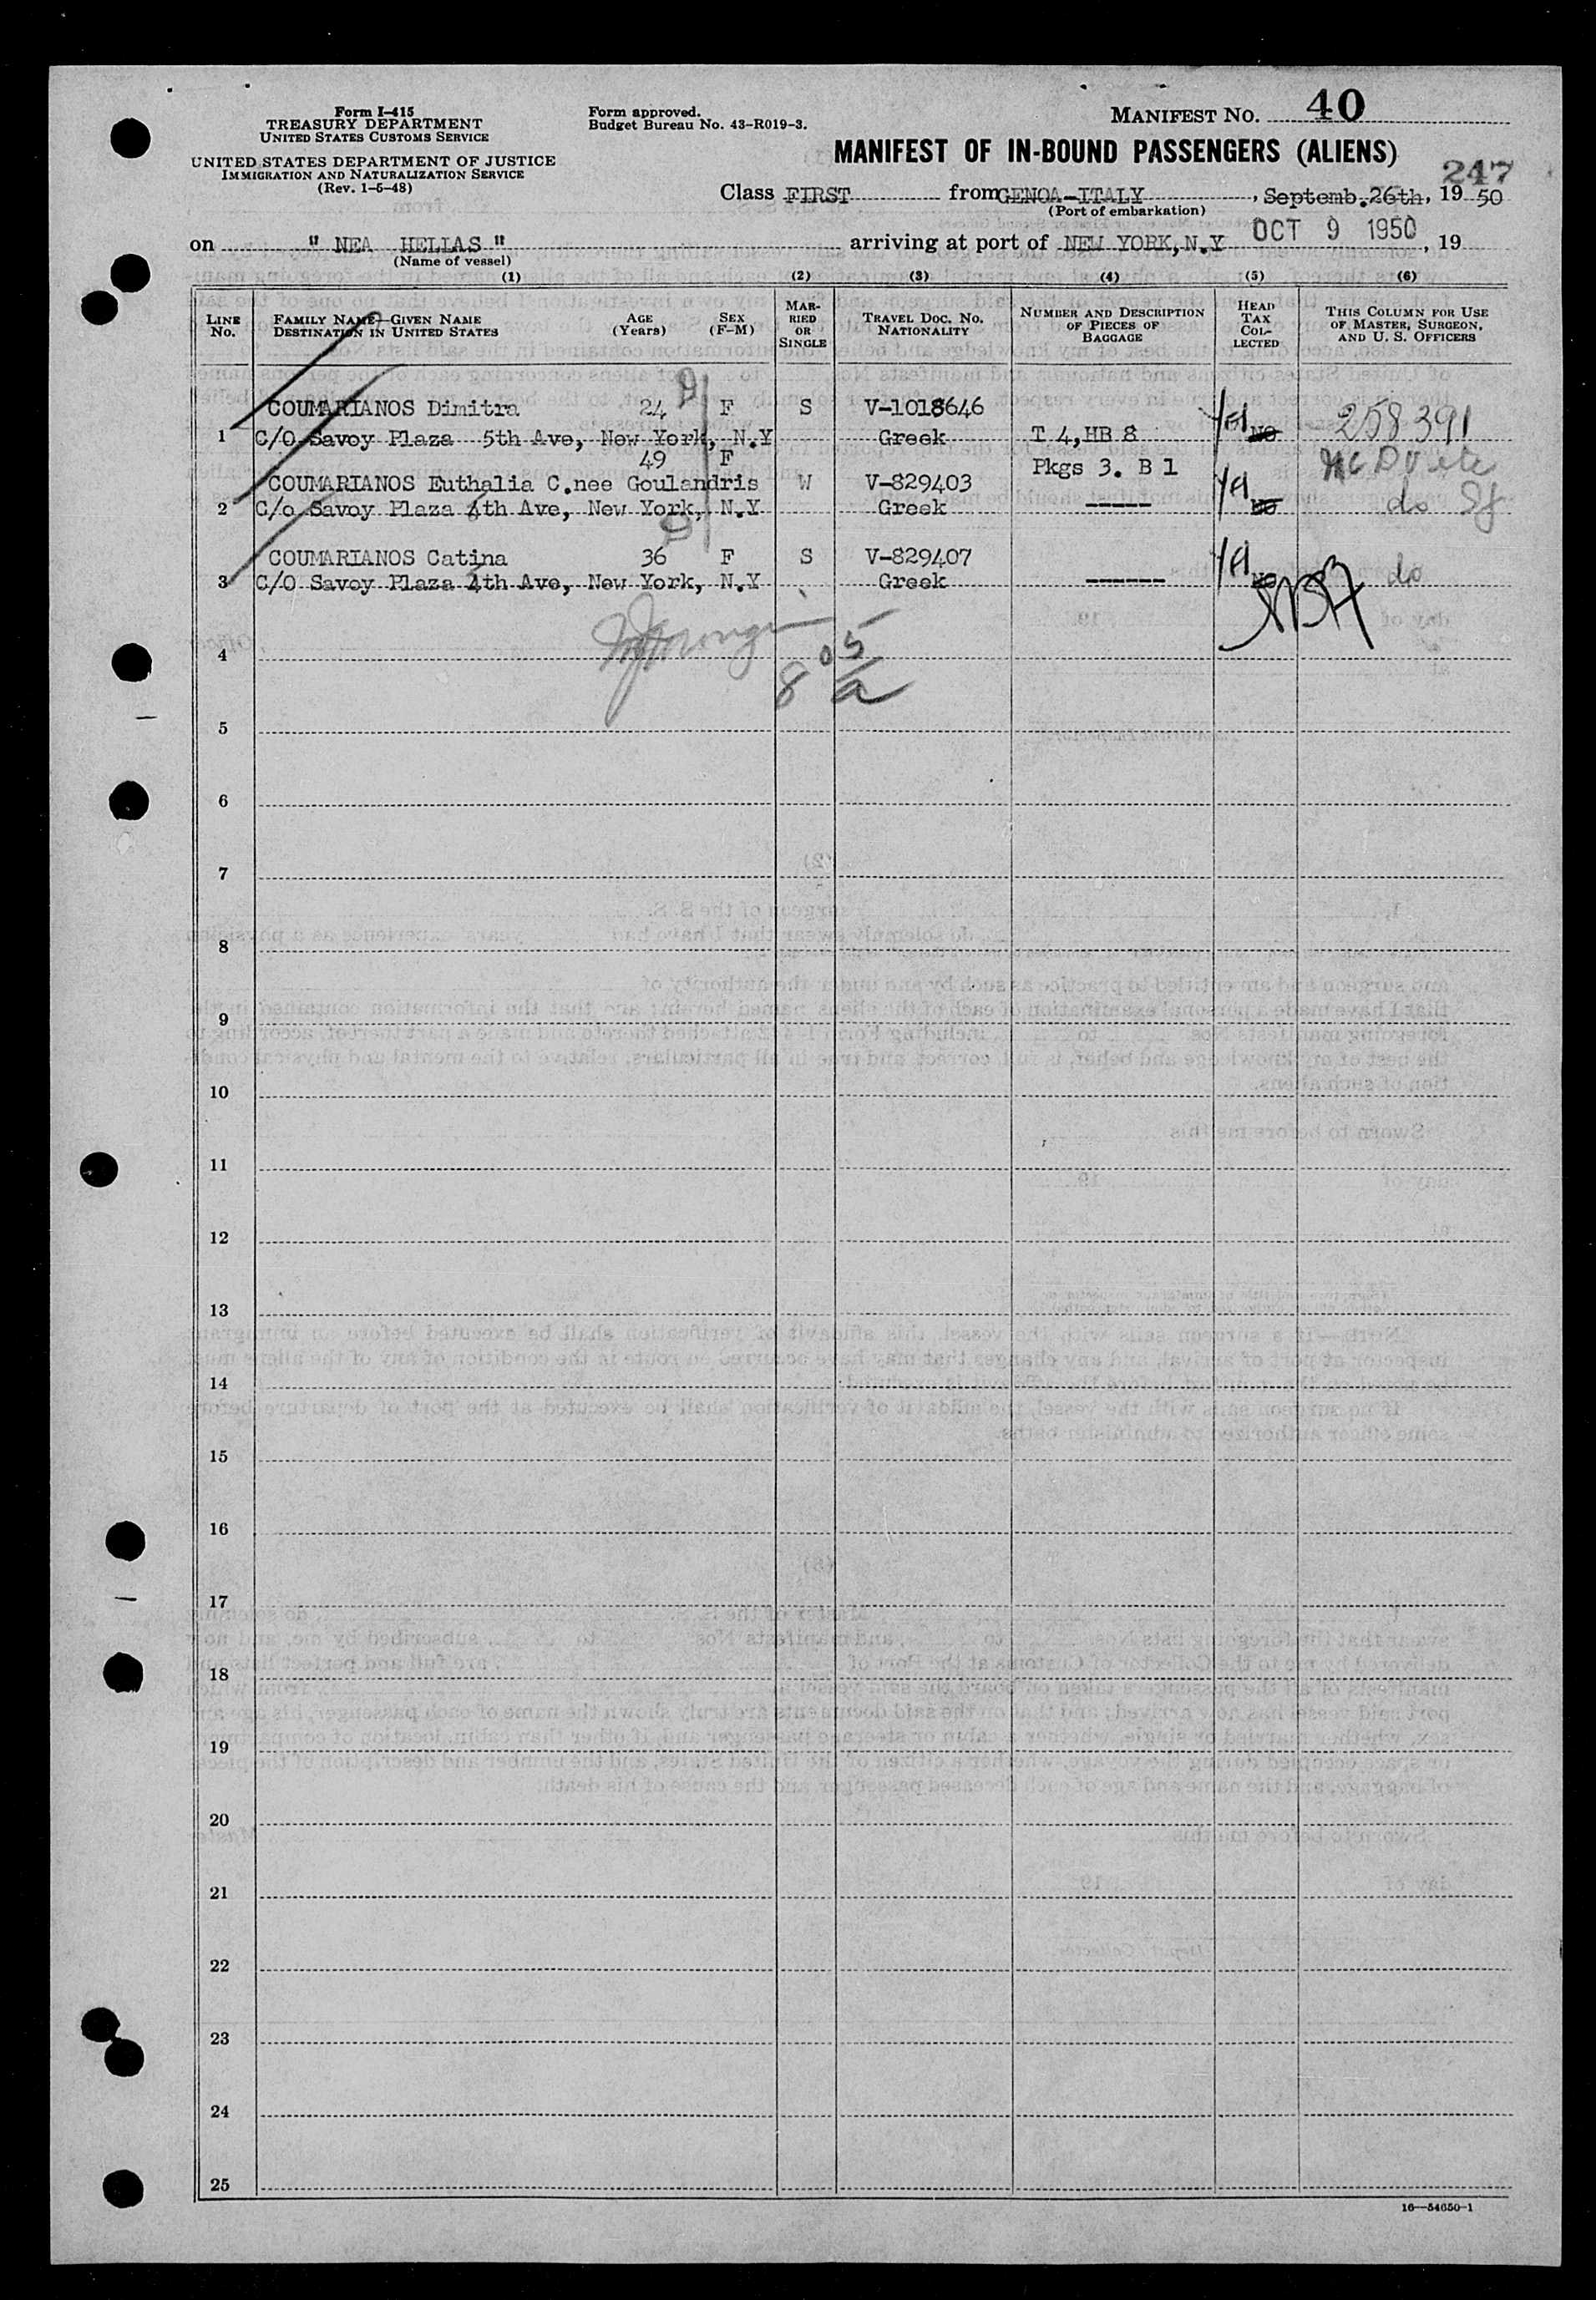 Form I-415
TREASURY DEPARTMENT
UNITED STATES CUSTOMS SERVICE
UNITED STATES DEPARTMENT OF JUSTICE
IMMIGRATION AND NATURALIZATION SERVICE
(Rev. 1-5-48)
Form approved.
Budget Bureau No. 43-R019-3.
MANIFEST NO. 40
MANIFEST OF IN-BOUND PASSENGERS (ALIENS)
247
Class FIRST from GENOA-ITALY, Septemb.26th, 19 50
(Port of embarkation)
on " NEA HELLAS " arriving at port of NEW YORK,N.Y OCT 9 1950, 19
(Name of vessel)
(1) (2) (3) (4) (5) (6)
LINE No. FAMILY NAME—GIVEN NAME DESTINATION IN UNITED STATES AGE (Years) SEX (F-M) MARRIED OR SINGLE TRAVEL DOC. NO. NATIONALITY NUMBER AND DESCRIPTION OF PIECES OF BAGGAGE HEAD TAX COLLECTED THIS COLUMN FOR USE OF MASTER, SURGEON, AND U. S. OFFICERS
COUMARIANOS Dimitra 24 F S V-1018646 258391
1 C/O Savoy Plaza 5th Ave, New York, N.Y Greek T 4,HB 8 NO
49 F Pkgs 3. B 1
COUMARIANOS Euthalia C.nee Goulandris W V-829403
2 C/o Savoy Plaza 4th Ave, New York, N.Y Greek ----- do
COUMARIANOS Catina 36 F S V-829407
3 C/O Savoy Plaza 4th Ave, New York, N.Y Greek ------ NO do
4
8 05/a
5
6
7
8
9
10
11
12
13
14
15
16
17
18
19
20
21
22
23
24
25
16—54650-1